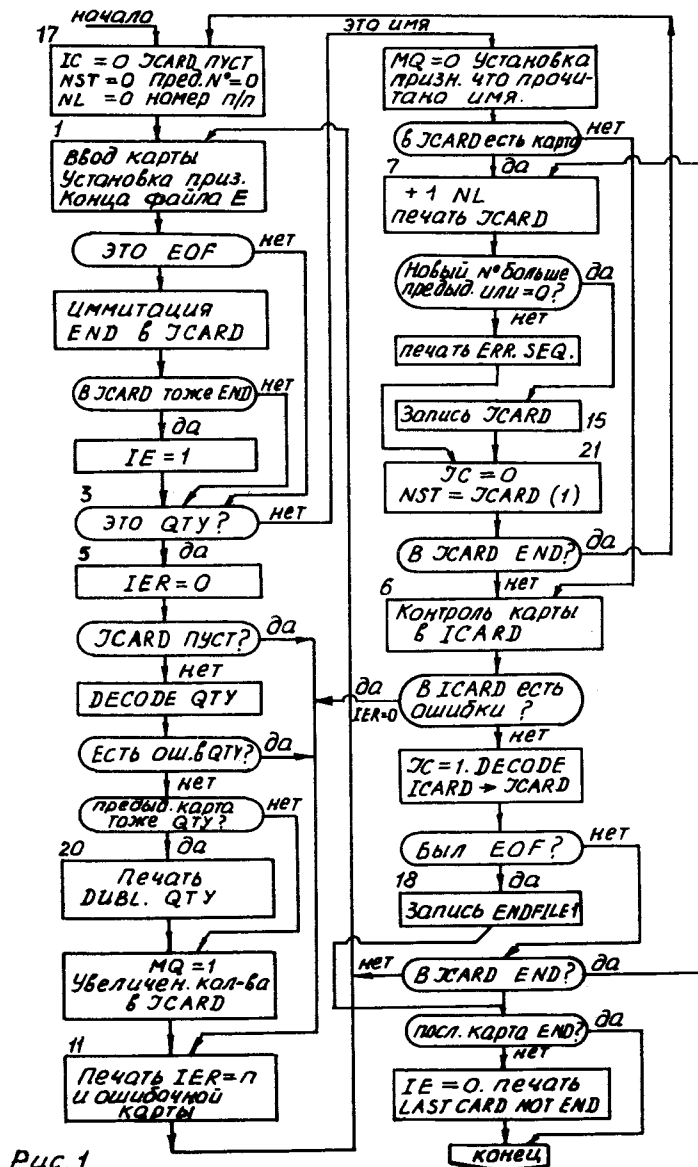 начало
17
IC = 0 JCARD ПУСТ
NST = 0 пред. N° = 0
NL = 0 номер п/п
1
Ввод карты
Установка приз.
Конца файла E
ЭТО EOF
нет
Иммитация
END в JCARD
В JCARD тоже END
нет
да
IE = 1
3
ЭТО QTY?
нет
да
5
IER = 0
JCARD ПУСТ?
да
нет
DECODE QTY
Есть ош. в QTY?
да
нет
предыд. карта
тоже QTY?
нет
да
20
Печать
DUBL. QTY
MQ = 1
Увеличен. кол-ва
в JCARD
11
Печать IER = n
и ошибочной
карты
Рис 1
это имя
MQ = 0 Установка
призн. что прочи-
тана имя.
в JCARD есть карта
нет
да
7
+ 1 NL
печать JCARD
Новый N° больше
предыд. или = 0?
да
нет
печать ERR. SEQ.
Запись JCARD
15
21
JC = 0
NST = JCARD (1)
В JCARD END?
да
нет
6
Контроль карты
в ICARD
В ICARD есть
ошибки ?
да
IER=0
нет
JC = 1. DECODE
ICARD → JCARD
Был EOF?
нет
да
18
Запись ENDFILE1
В JCARD END?
нет
да
посл. карта END?
да
нет
IE = 0. печать
LAST CARD NOT END
конец